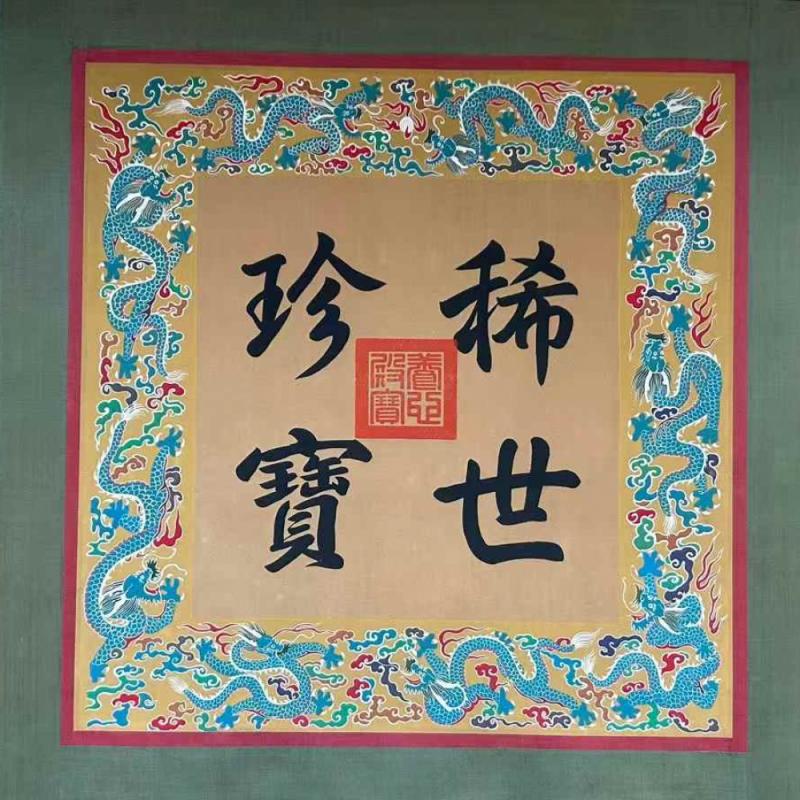 稀世
珍寶
養心殿寶